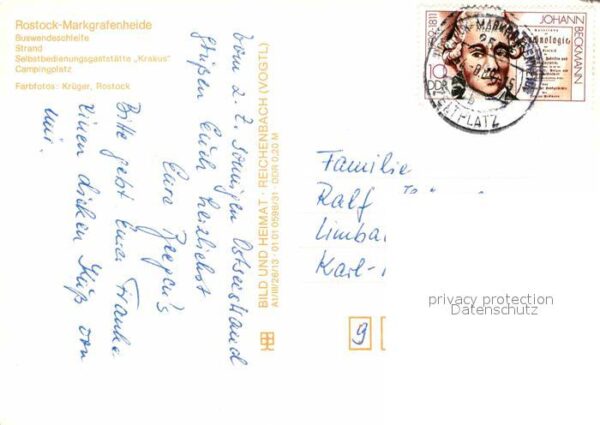 Rostock-Markgrafenheide
Buswendeschleife
Strand
Selbstbedienungsgaststätte „Krakus"
Campingplatz
Farbfotos: Krüger, Rostock
Vom z. Z. sonnigen Ostseestrand
grüßen Euch herzlichst
Eure
Bitte gebt Eurer
einen dicken Kuß von
mir.
BILD UND HEIMAT · REICHENBACH (VOGTL)
A1/III/26/13 · 01 01 0598/31 · DDR 0,20 M
JOHANN
BECKMANN
1811
10
DDR
Technologie
ZELTPLATZ
Familie
Ralf
Limba
Karl-
9
privacy protection
Datenschutz